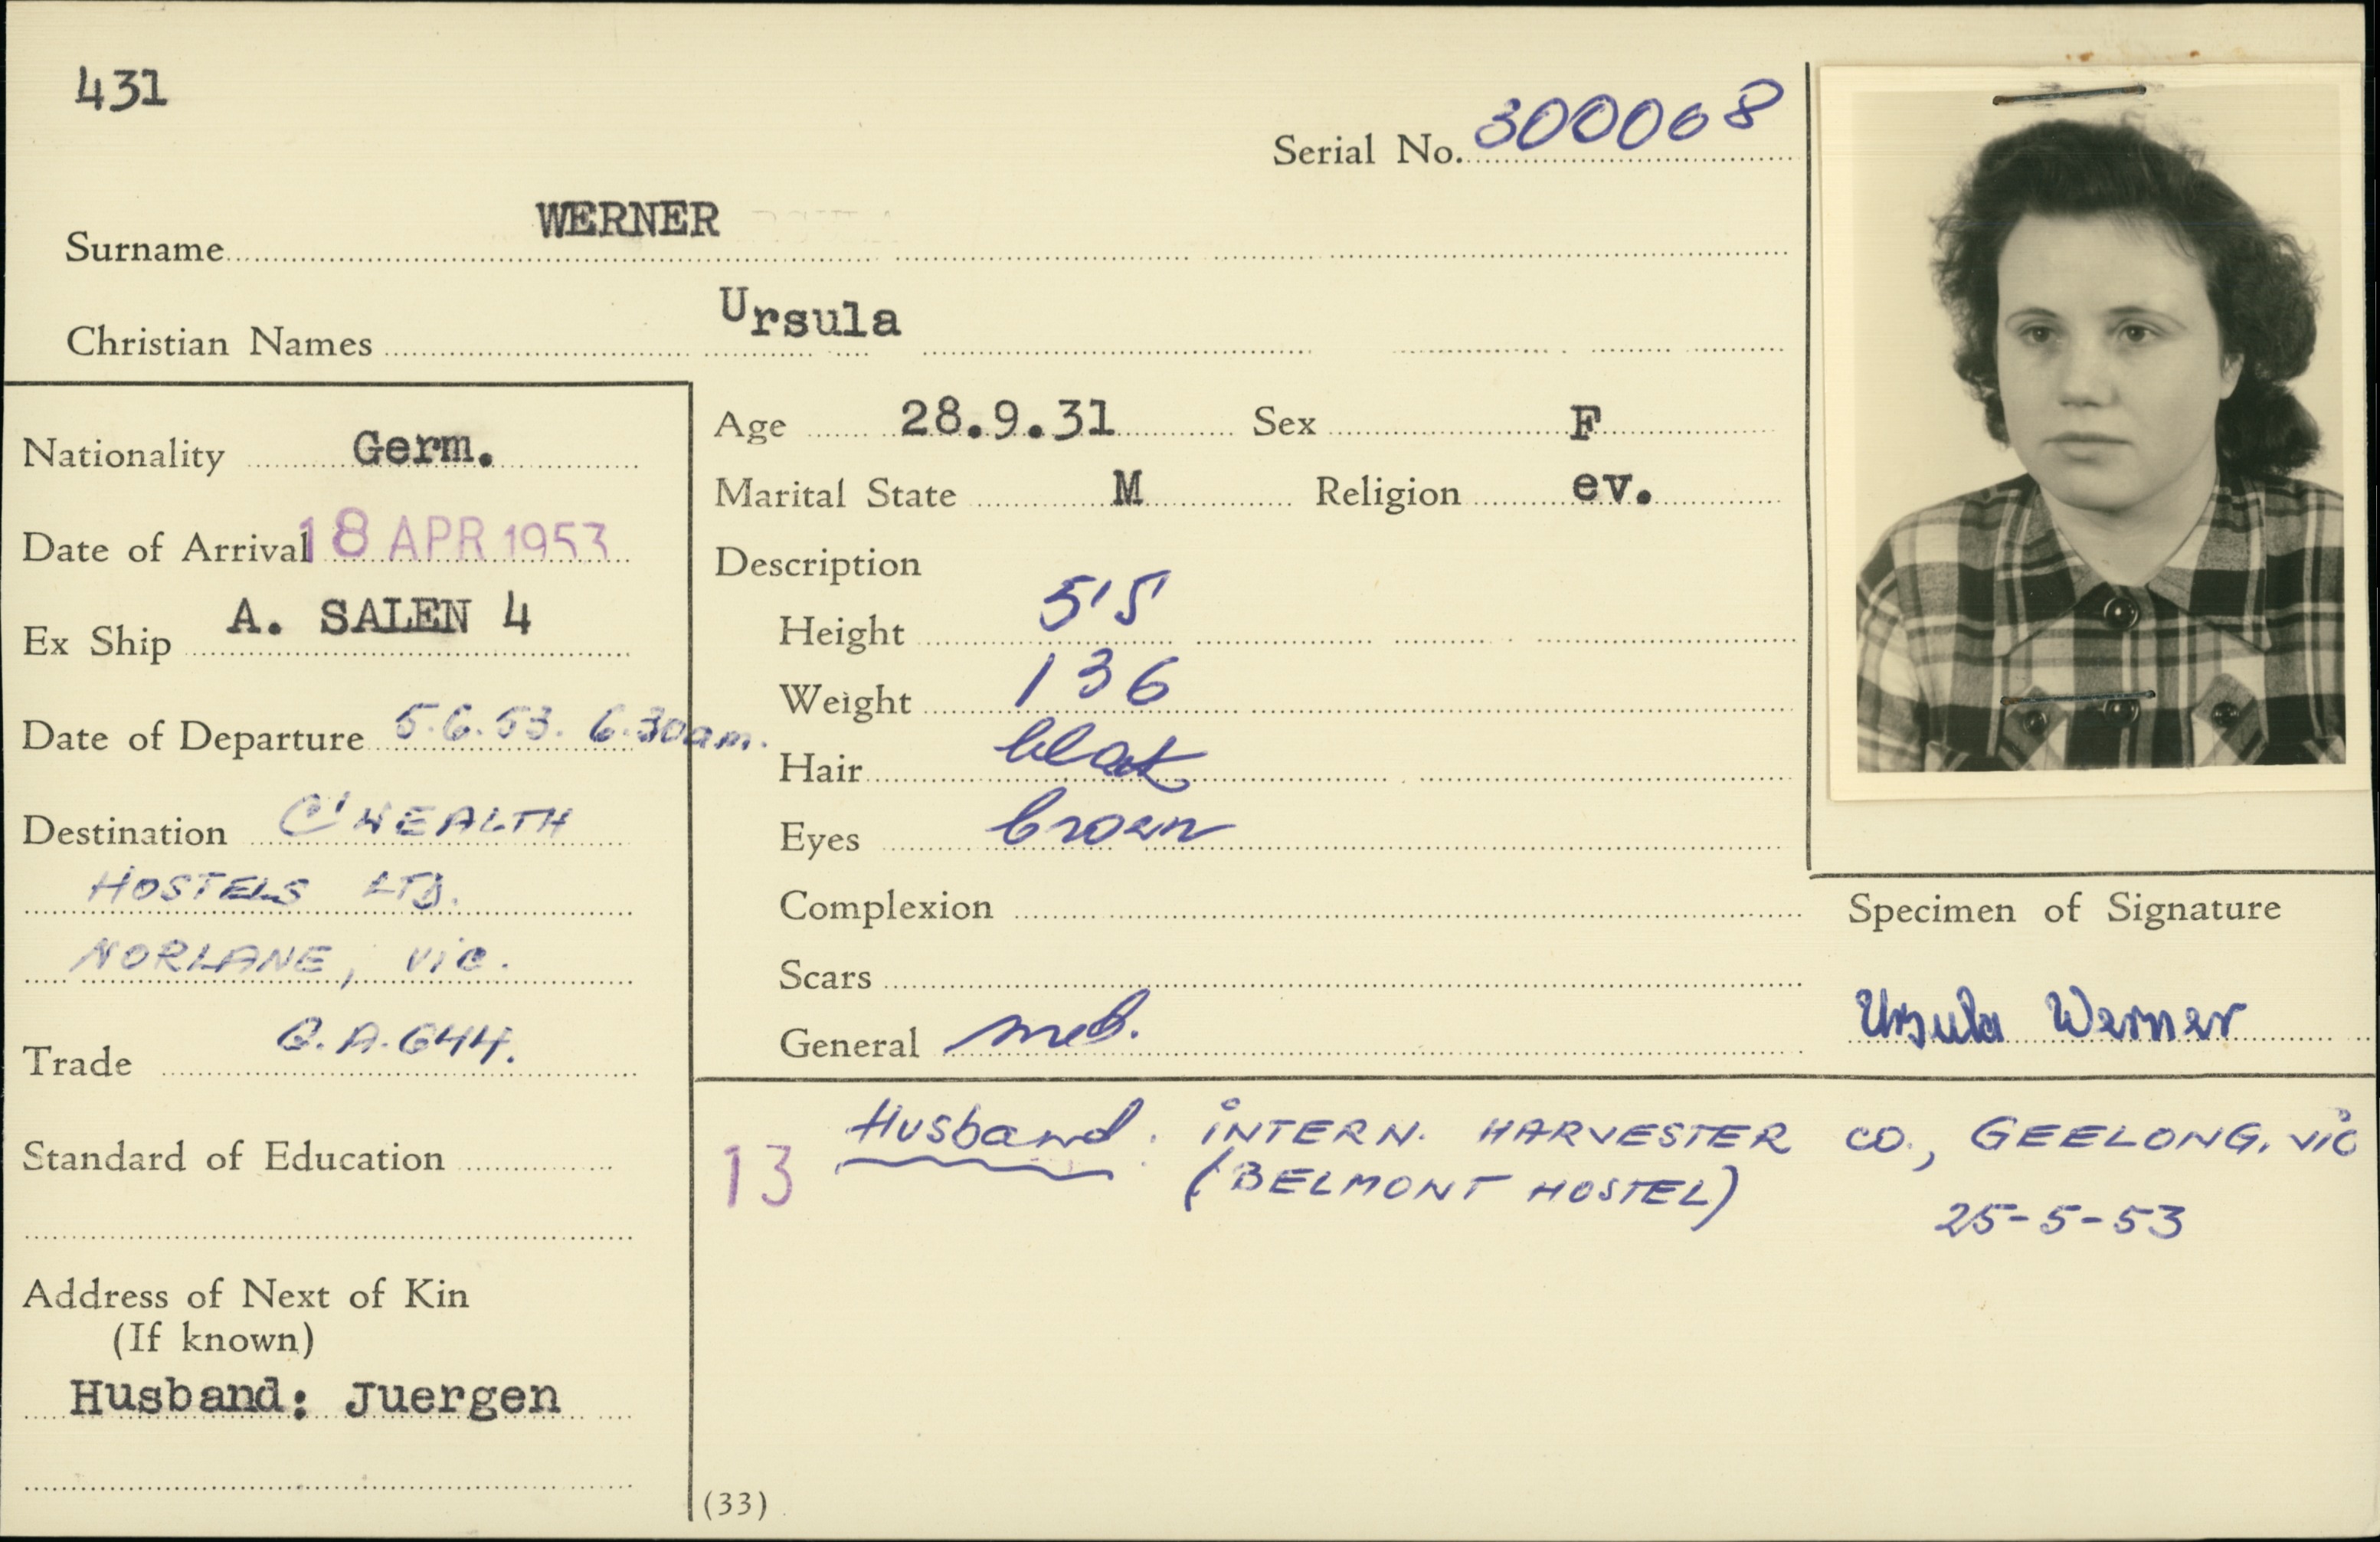 431
Serial No. 300008
Surname WERNER
Christian Names Ursula
Nationality Germ.
Date of Arrival 18 APR 1953
Ex Ship A. SALEN 4
Date of Departure 5.6.53. 6.30am.
Destination C'WEALTH
HOSTELS LTD.
NORLANE, VIC.
Trade
Standard of Education
Address of Next of Kin
(If known)
Husband: Juergen
Age 28.9.31 Sex F
Marital State M Religion ev.
Description
Height 5'5
Weight 136
Hair blak
Eyes brown
Complexion
Scars
General
Specimen of Signature
Ursula Werner
13 Husband. INTERN. HARVESTER CO., GEELONG. VIC
(BELMONT HOSTEL)
25-5-53
(33)